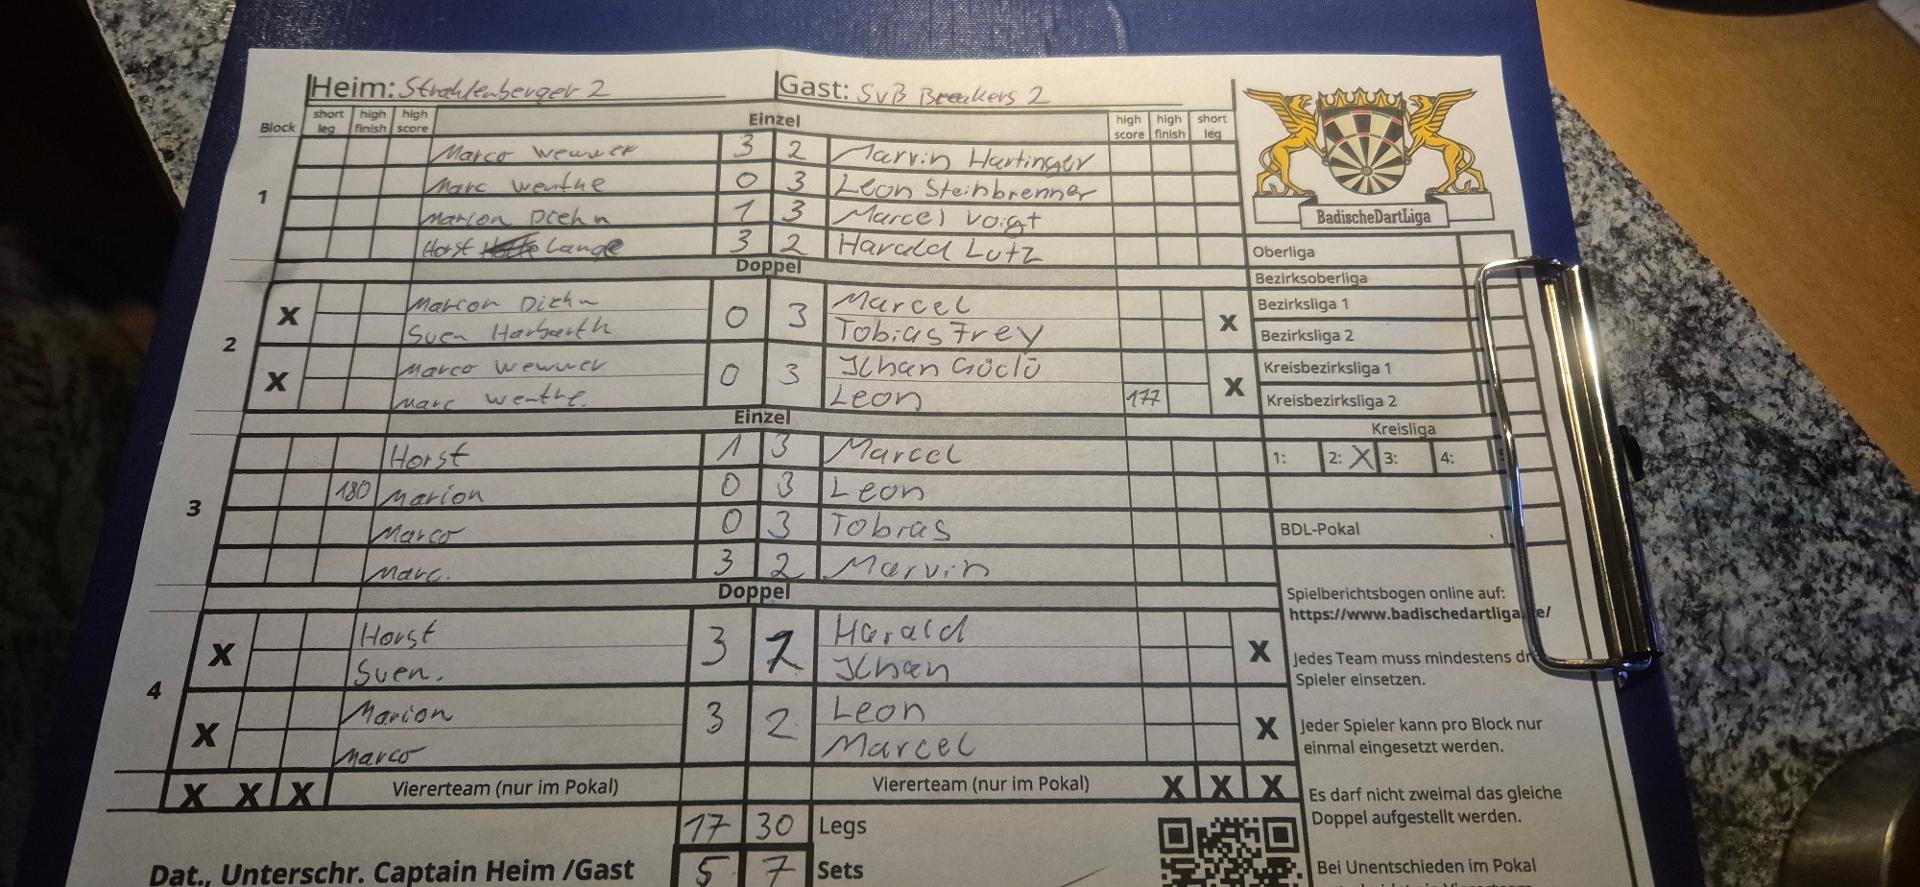 Heim: Strahlenberger 2 Gast: SVB Breakers 2
Block short leg high finish high score Einzel high score high finish short leg
1
Marco Wewwer 3 2 Marvin Hartinger
Marc Wenthe 0 3 Leon Steinbrenner
Marion Diehn 1 3 Marcel Voigt
Horst Lange 3 2 Harald Lutz
Doppel
2
X Marion Diehn 0 3 Marcel X
Sven Harbarth Tobias Frey
X Marco Wewwer 0 3 Ilhan Güclü X
Marc Wenthe. Leon 177
Einzel
3
Horst 1 3 Marcel
180 Marion 0 3 Leon
Marco 0 3 Tobias
Marc. 3 2 Marvin
Doppel
4
X Horst 3 2 Harald X
Sven. Ilhan
X Marion 3 2 Leon X
Marco Marcel
X X X Viererteam (nur im Pokal) Viererteam (nur im Pokal) X X X
17 30 Legs
Dat., Unterschr. Captain Heim /Gast 5 7 Sets
BadischeDartLiga
Oberliga
Bezirksoberliga
Bezirksliga 1
Bezirksliga 2
Kreisbezirksliga 1
Kreisbezirksliga 2
Kreisliga
1: 2: X 3: 4:
BDL-Pokal
Spielberichtsbogen online auf:
https://www.badischedartliga.de/
Jedes Team muss mindestens
Spieler einsetzen.
Jeder Spieler kann pro Block nur
einmal eingesetzt werden.
Es darf nicht zweimal das gleiche
Doppel aufgestellt werden.
Bei Unentschieden im Pokal